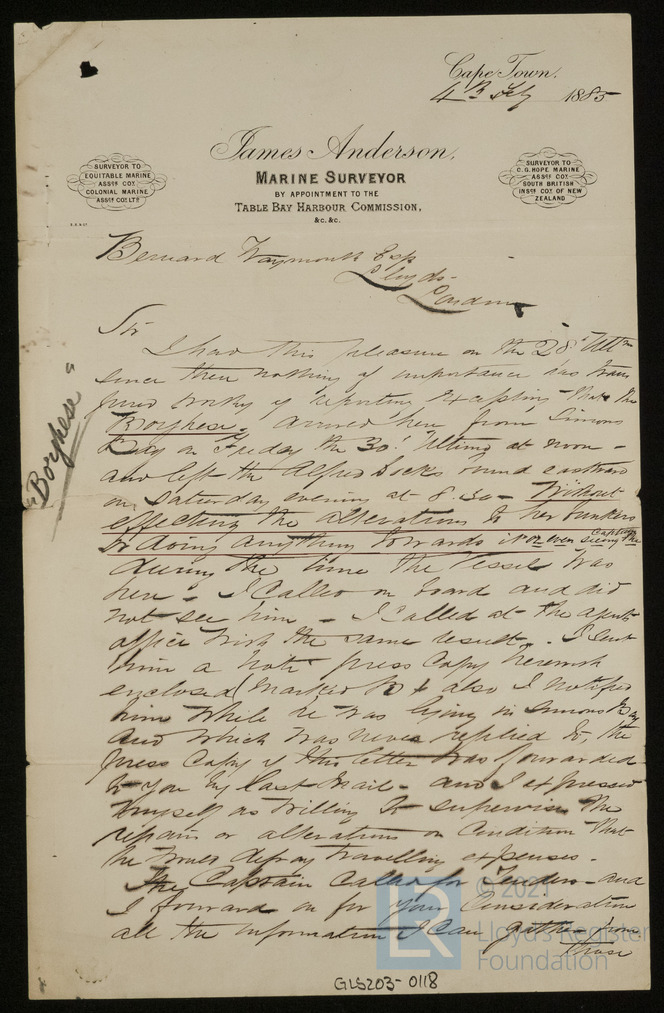 Cape Town,
4th Feby 1885
James Anderson,
MARINE SURVEYOR
BY APPOINTMENT TO THE
TABLE BAY HARBOUR COMMISSION,
&c. &c.
SURVEYOR TO
EQUITABLE MARINE
ASSCE COY.
COLONIAL MARINE
ASSCE CO: LTD
SURVEYOR TO
C.G. HOPE MARINE
ASSCE COY.
SOUTH BRITISH
INSCE COY. OF NEW
ZEALAND
Bernard Waymouth Esq
Lloyds -
London
Sir
I had this pleasure on the 28 Ultm
since then nothing of importance has trans
pired worthy of reporting excepting that the
Borghese. arrived here from Simons
Bay on Friday the 30. Ultimo at noon -
and left the Alfred Docks bound eastward
on Saturday evening at 8.30 - Without
effecting the alterations to her bunkers
or doing anything towards it or even seeing the Captain
during the time the Vessel was
here - I called on board and did
not see him - I called at the agents
office with the same result. I sent
him a note press Copy herewith
enclosed (marked B) & also I notified
him while he was lying in Simons Bay
and which was never replied to, the
press Copy of this letter was forwarded
to you by last mail - and I expressed
myself as willing to supervise the
repairs or alterations on Condition that
he would defray travelling expenses -
The Captain called for Tenders - and
I forward on for your Consideration
all the information I can gather from
those
"Borghese"
GLS203-0118
© 2021
LR
Lloyd's Register
Foundation